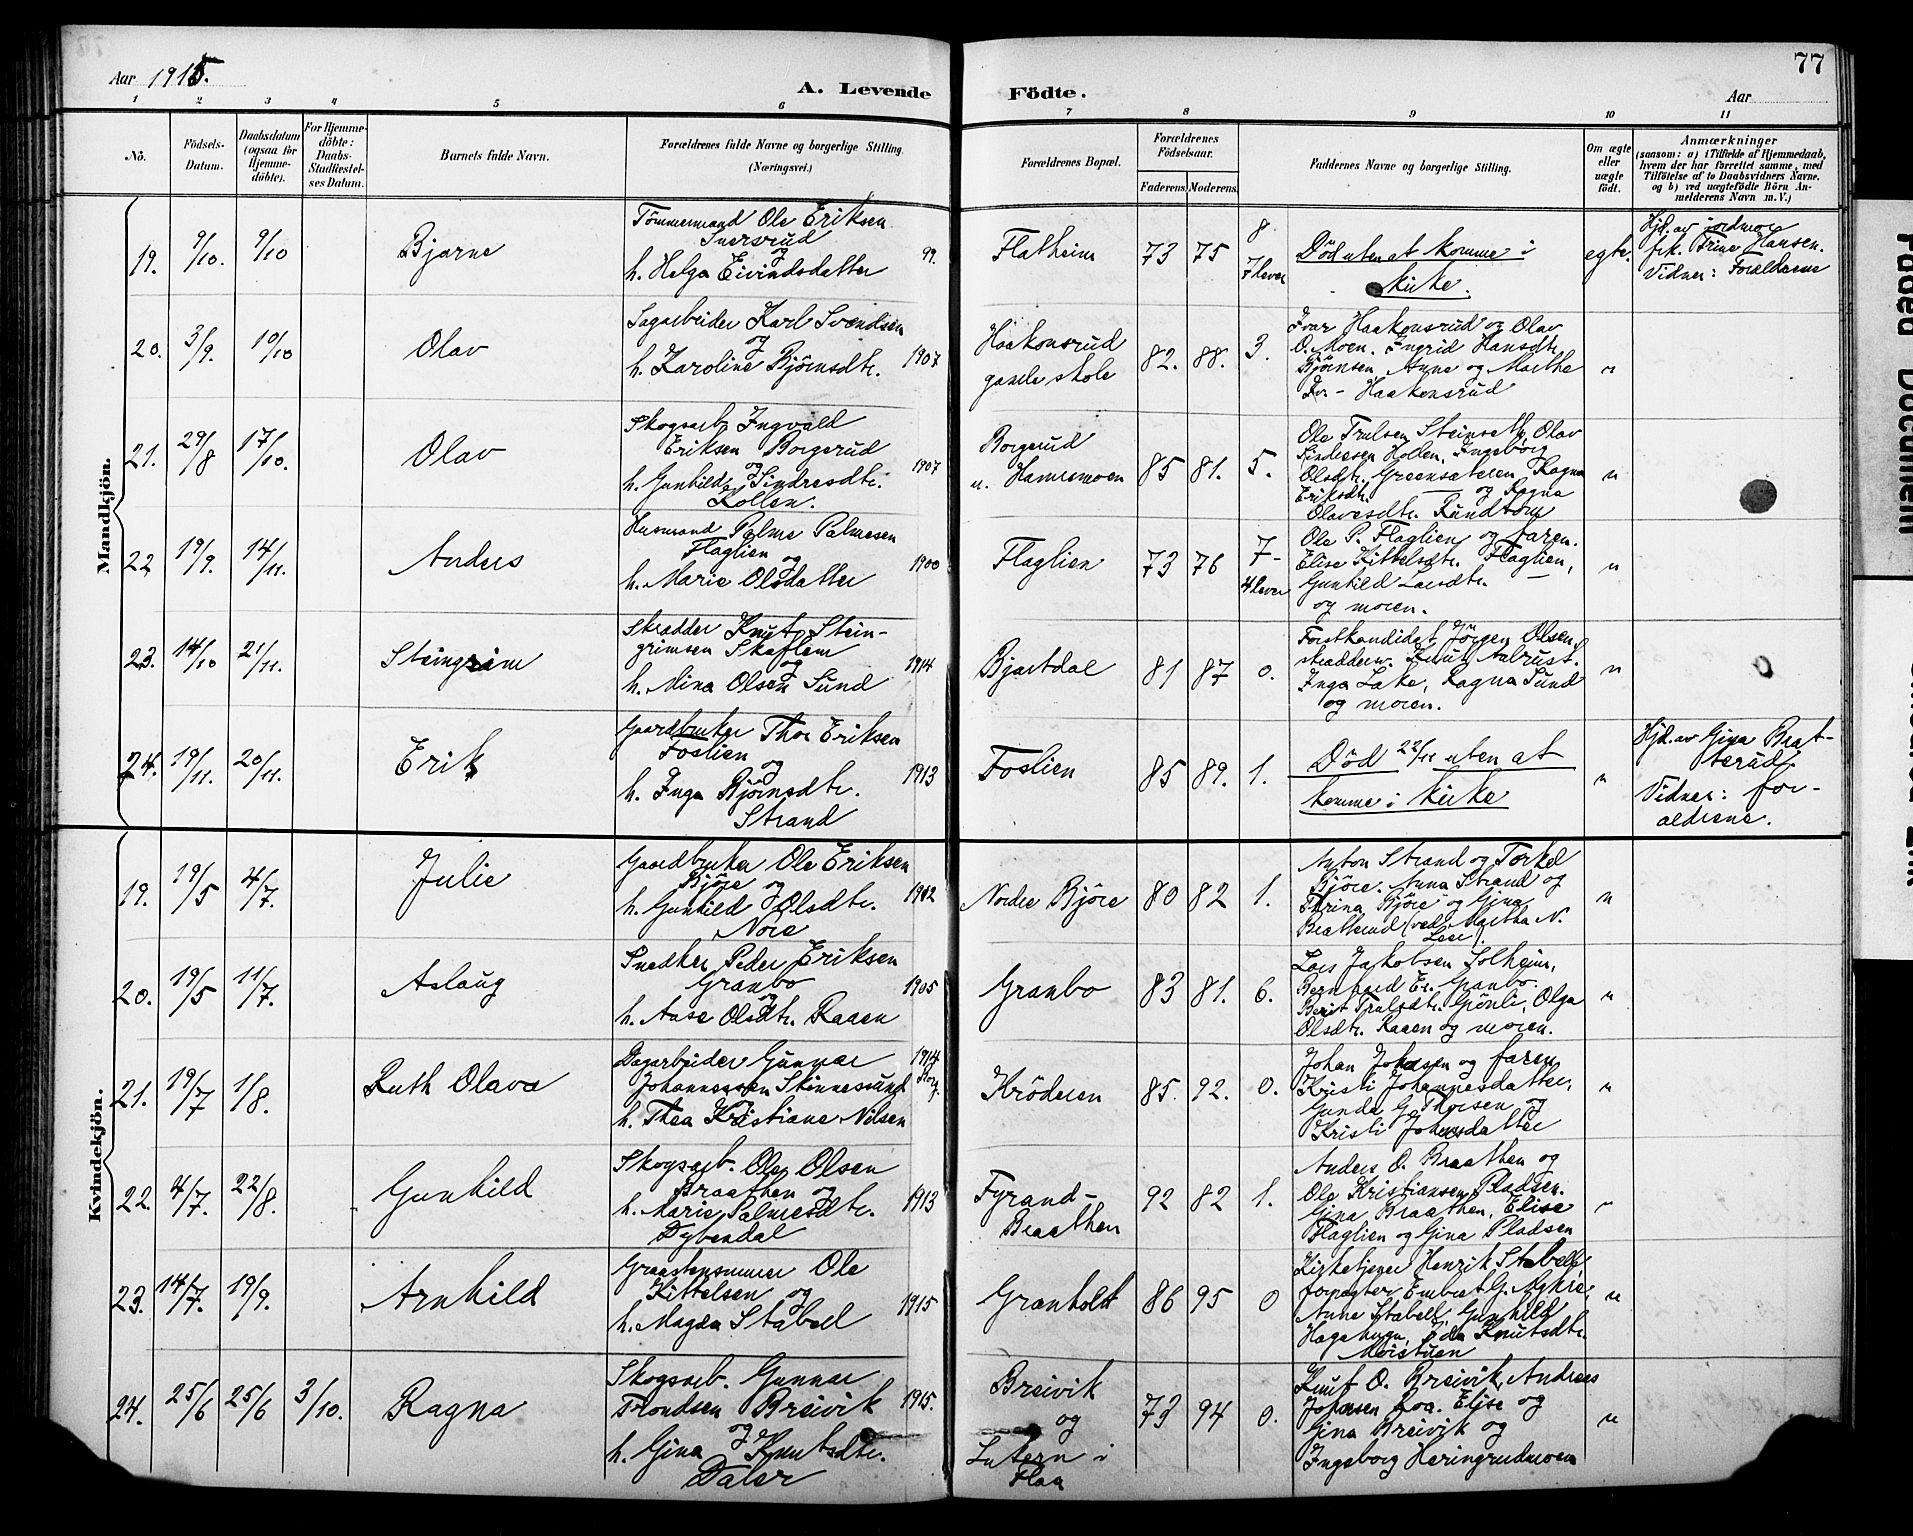 Aar 1915.
A. Levende Födte.
77
Aar
1 2 3 4 5 6 7 8 9 10 11
No.
Födsels-
Datum.
Daabsdatum
(ogsaa for
Hjemme-
döbte).
For Hjemme-
döbte:
Daabs-
Stadfæstel-
ses Datum.
Barnets fulde Navn.
Forældrenes fulde Navne og borgerlige Stilling.
(Næringsvei.)
Forældrenes Bopæl.
Forældrenes
Födselsaar.
Faderens. Moderens.
Faddernes Navne og borgerlige Stilling.
Om ægte
eller
uægte
födt.
Anmærkninger
(saasom: a) i Tilfælde af Hjemmedaab,
hvem der har forrettet samme, med
Tilföielse af to Daabsvidners Navne,
og b) ved uægtefödte Börn An-
melderens Navn m. V.)
Mandkjön.
19. 9/10. 9/10 Bjarne
Tömmermand Ole Eriksen
Snersrud
og
h. Helga Eivindsdatter 99.
Flatheim 73 75
8.
7 lever
Död uten at komme i
kirke.
egte.
Hjd. av jordmor
frk. Trine Hansen.
Vidner: Forældrene
20. 3/9. 10/10 Olav
Sagarbeider Karl Svendsen
og
h. Karoline Björnsdtr. 1907
Haakonsrud
gamle skole
82. 88. 3.
Ivar Haakonsrud og Olav
O. Moen. Ingrid Hansdtr.
Björnsen, Anne og Marthe
Haakonsrud
"
21. 29/8 17/10. Olav
Skogsarb. Ingvald
Eriksen Borgerud
og
h. Gunhild Sindresdtr.
Kollen. 1907
Borgerud
u. Hamremoen
85 81. 5.
Ole Trulsen Steinseth, Olav
Sindresen Kollen, Ingebörg
Olsdtr. Greensæteren, Ragna
Eriksdtr. — og Ragna
Olavesdtr. Rundtom
"
22 19/9. 14/11. Anders
Husmand Palme Palmesen
Flaglien og
h. Marie Olsdatter 1900
Flaglien 73 76
7-
4 lever
Ole P. Flaglien og faren.
Elise Kittelsdtr. Flaglien,
Gunhild Larsdtr. —
og moren.
"
23. 14/10 21/11. Steingrim
Skrædder Knut Stein-
grimsen Skaflem
og
h. Mina Olsen Sund 1914
Bjartdal 81 87 0.
Forstkandidat Jörgen Olsen,
skræddersv. Knut Aalrust.
Inga Lake, Ragna Sund
og moren.
"
24. 19/11. 20/11. Erik
Gaardbruker Thor Eriksen
Foslien
og
h. Inga Björnsdtr.
Strand 1913
Foslien 85 89. 1.
Död 22/11 uten at
komme i kirke
"
Hjd. av Gina Brat-
terud
Vidner: for-
ældrene.
Kvindekjön.
19. 19/5 4/7. Julie
Gaardbruker Ole Eriksen
Björe og
h. Gunhild Olsdtr.
Nore 1912
Nordre Björe 80 82 1.
Anton Strand og Torkel
Björe. Anna Strand og
Thrina Björe og Gina
Bratterud (ved Martha N.
Lase).
"
20. 19/5 11/7. Aslaug
Snedker Peder Eriksen
Granbo
og
h. Aase Olsdtr. Raaen 1905
Granbo 83 81. 6.
Lars Jakobsen Solheim,
Bernhard Er. Granbo.
Berit Trulsdtr. Grönli, Olga
Olsdtr. Raaen og moren.
"
21. 19/7 1/8. Ruth Olava
Dagarbeider Gunnar
Johannessen Stinnesund
og
h. Thea Kristiane Nilsen 1914
Kröderen 85. 92. 0.
Johan Johnsen og faren,
Kristi Johannesdatter,
Gunda G. Thorsen og
Kristi Johnsdatter
"
22. 4/7. 22/8. Gunhild
Skogsarb. Ole Olsen
Braathen og
h. Marie Palmesdtr.
Dybendal 1913
Fyrand-
Braathen
92 82 1.
Anders O. Braathen og
Ole Kristiansen Pladsen.
Gina Braathen, Elise
Flaglien og Gina Pladsen
"
23. 14/7. 19/9. Arnhild
Graastensmurer Ole
Kittelsen og
h. Magda Stabell 1915
Granholt 86 95 0
Kirketjener Henrik Stabell,
forpagter Embret G. Mykre,
Anne Stabell, Gunhild
Hagehugu, Ida Knutsdtr.
Moistuen
"
24. 25/6 25/6 3/10. Ragna
Skogsarb. Gunnar
Trondsen Breivik
og
h. Gina Knutsdtr.
Daler 1915.
Breivik
og
Sutern i
Flaa
73 94 0.
Knut O. Breivik, Andreas
Johnsen Roa. Elise og
Gina Breivik og
Ingeborg Heringrudmoen
"
Faded Document